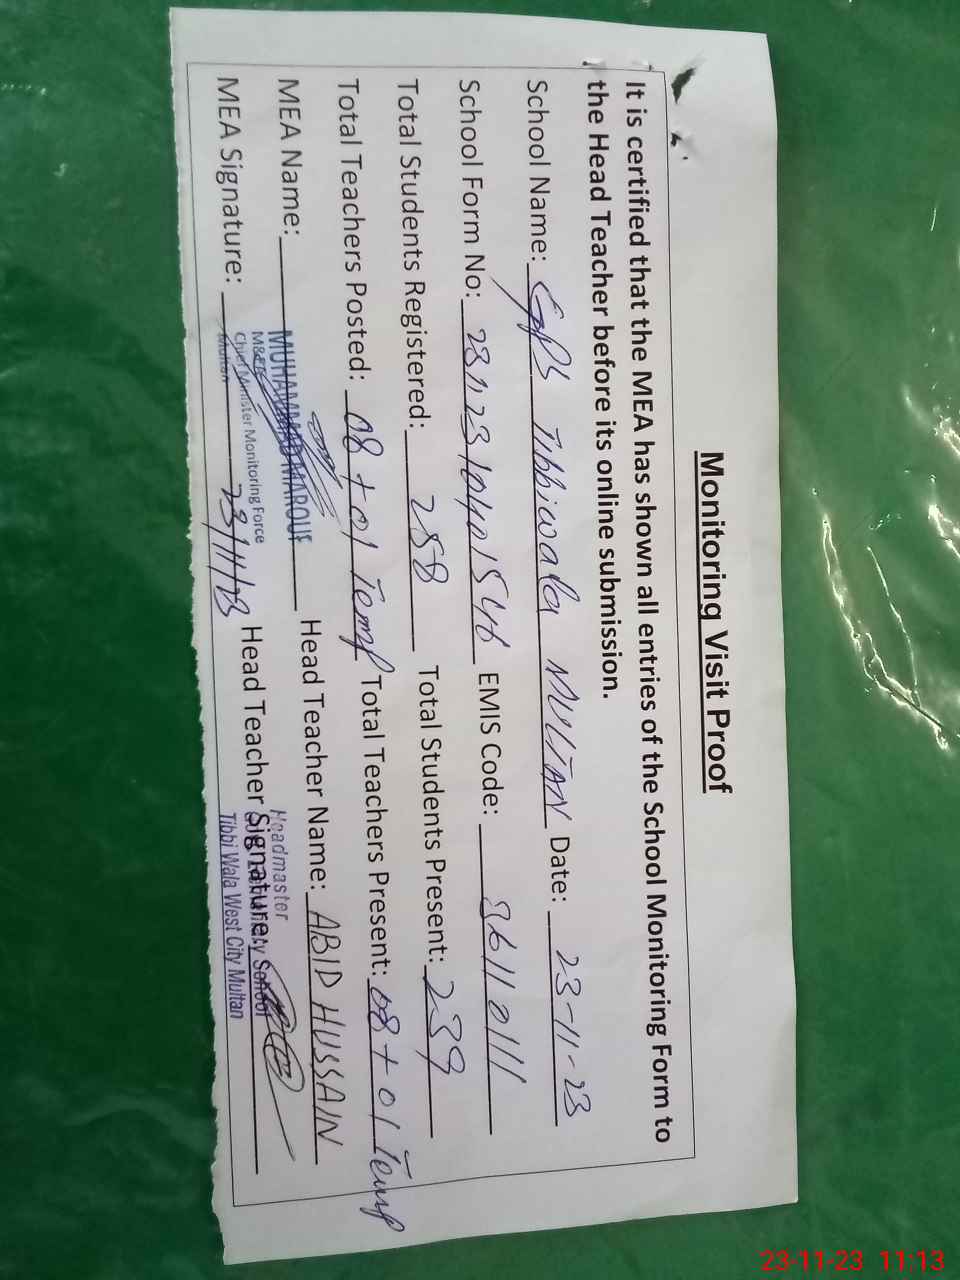 Monitoring Visit Proof
It is certified that the MEA has shown all entries of the School Monitoring Form to
the Head Teacher before its online submission.
School Name: GPS Tibbiwala MULTAN Date: 23-11-23
School Form No: EMIS Code: 36110111
Total Students Registered: 288 Total Students Present: 239
Total Teachers Posted: 08 + 01 Temp Total Teachers Present: 08 + 01 Temp
MEA Name: MUHAMMAD MAROUF Head Teacher Name: ABID HUSSAIN
Chief Minister Monitoring Force
Multan
MEA Signature: 23/11/23 Head Teacher Signature:
Headmaster
School
Tibbi Wala West City Multan
23-11-23 11:13